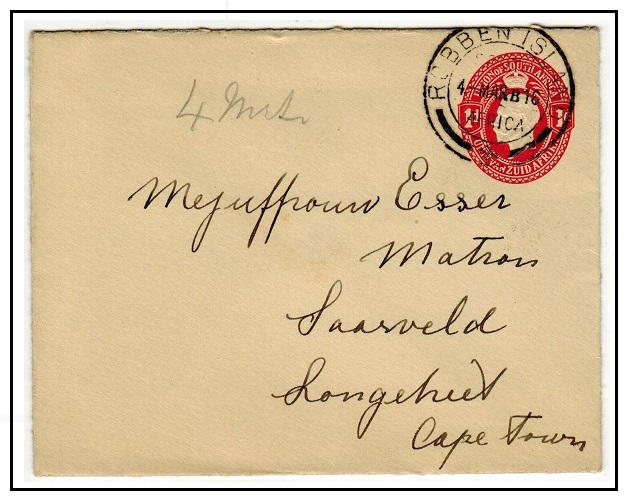 ROBBEN ISLA
4 MAR 16
UNION OF SOUTH AFRICA
UNIE VAN ZUID AFRIKA
Mejuffrouw Esser
Matron
Saasveld
Longstreet
Cape Town